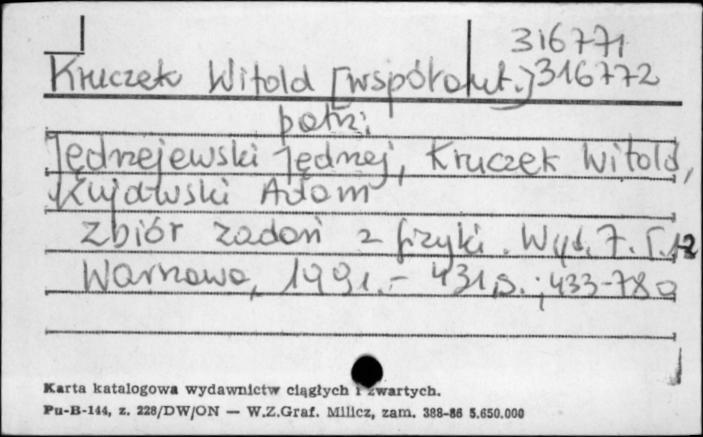 316771
Kruczek Witold [współaut.] 316772
patrz:
Jędrzejewski Jędrzej, Kruczek Witold,
Kujawski Adam
Zbiór zadań z fizyki. Wyd. 7. T. 1-2
Warszawa, 1991. - 431 s.; 433-780
Karta katalogowa wydawnictw ciągłych i zwartych.
Pu-B-144, z. 228/DW/ON — W.Z.Graf. Milicz, zam. 388-86 5.650.000